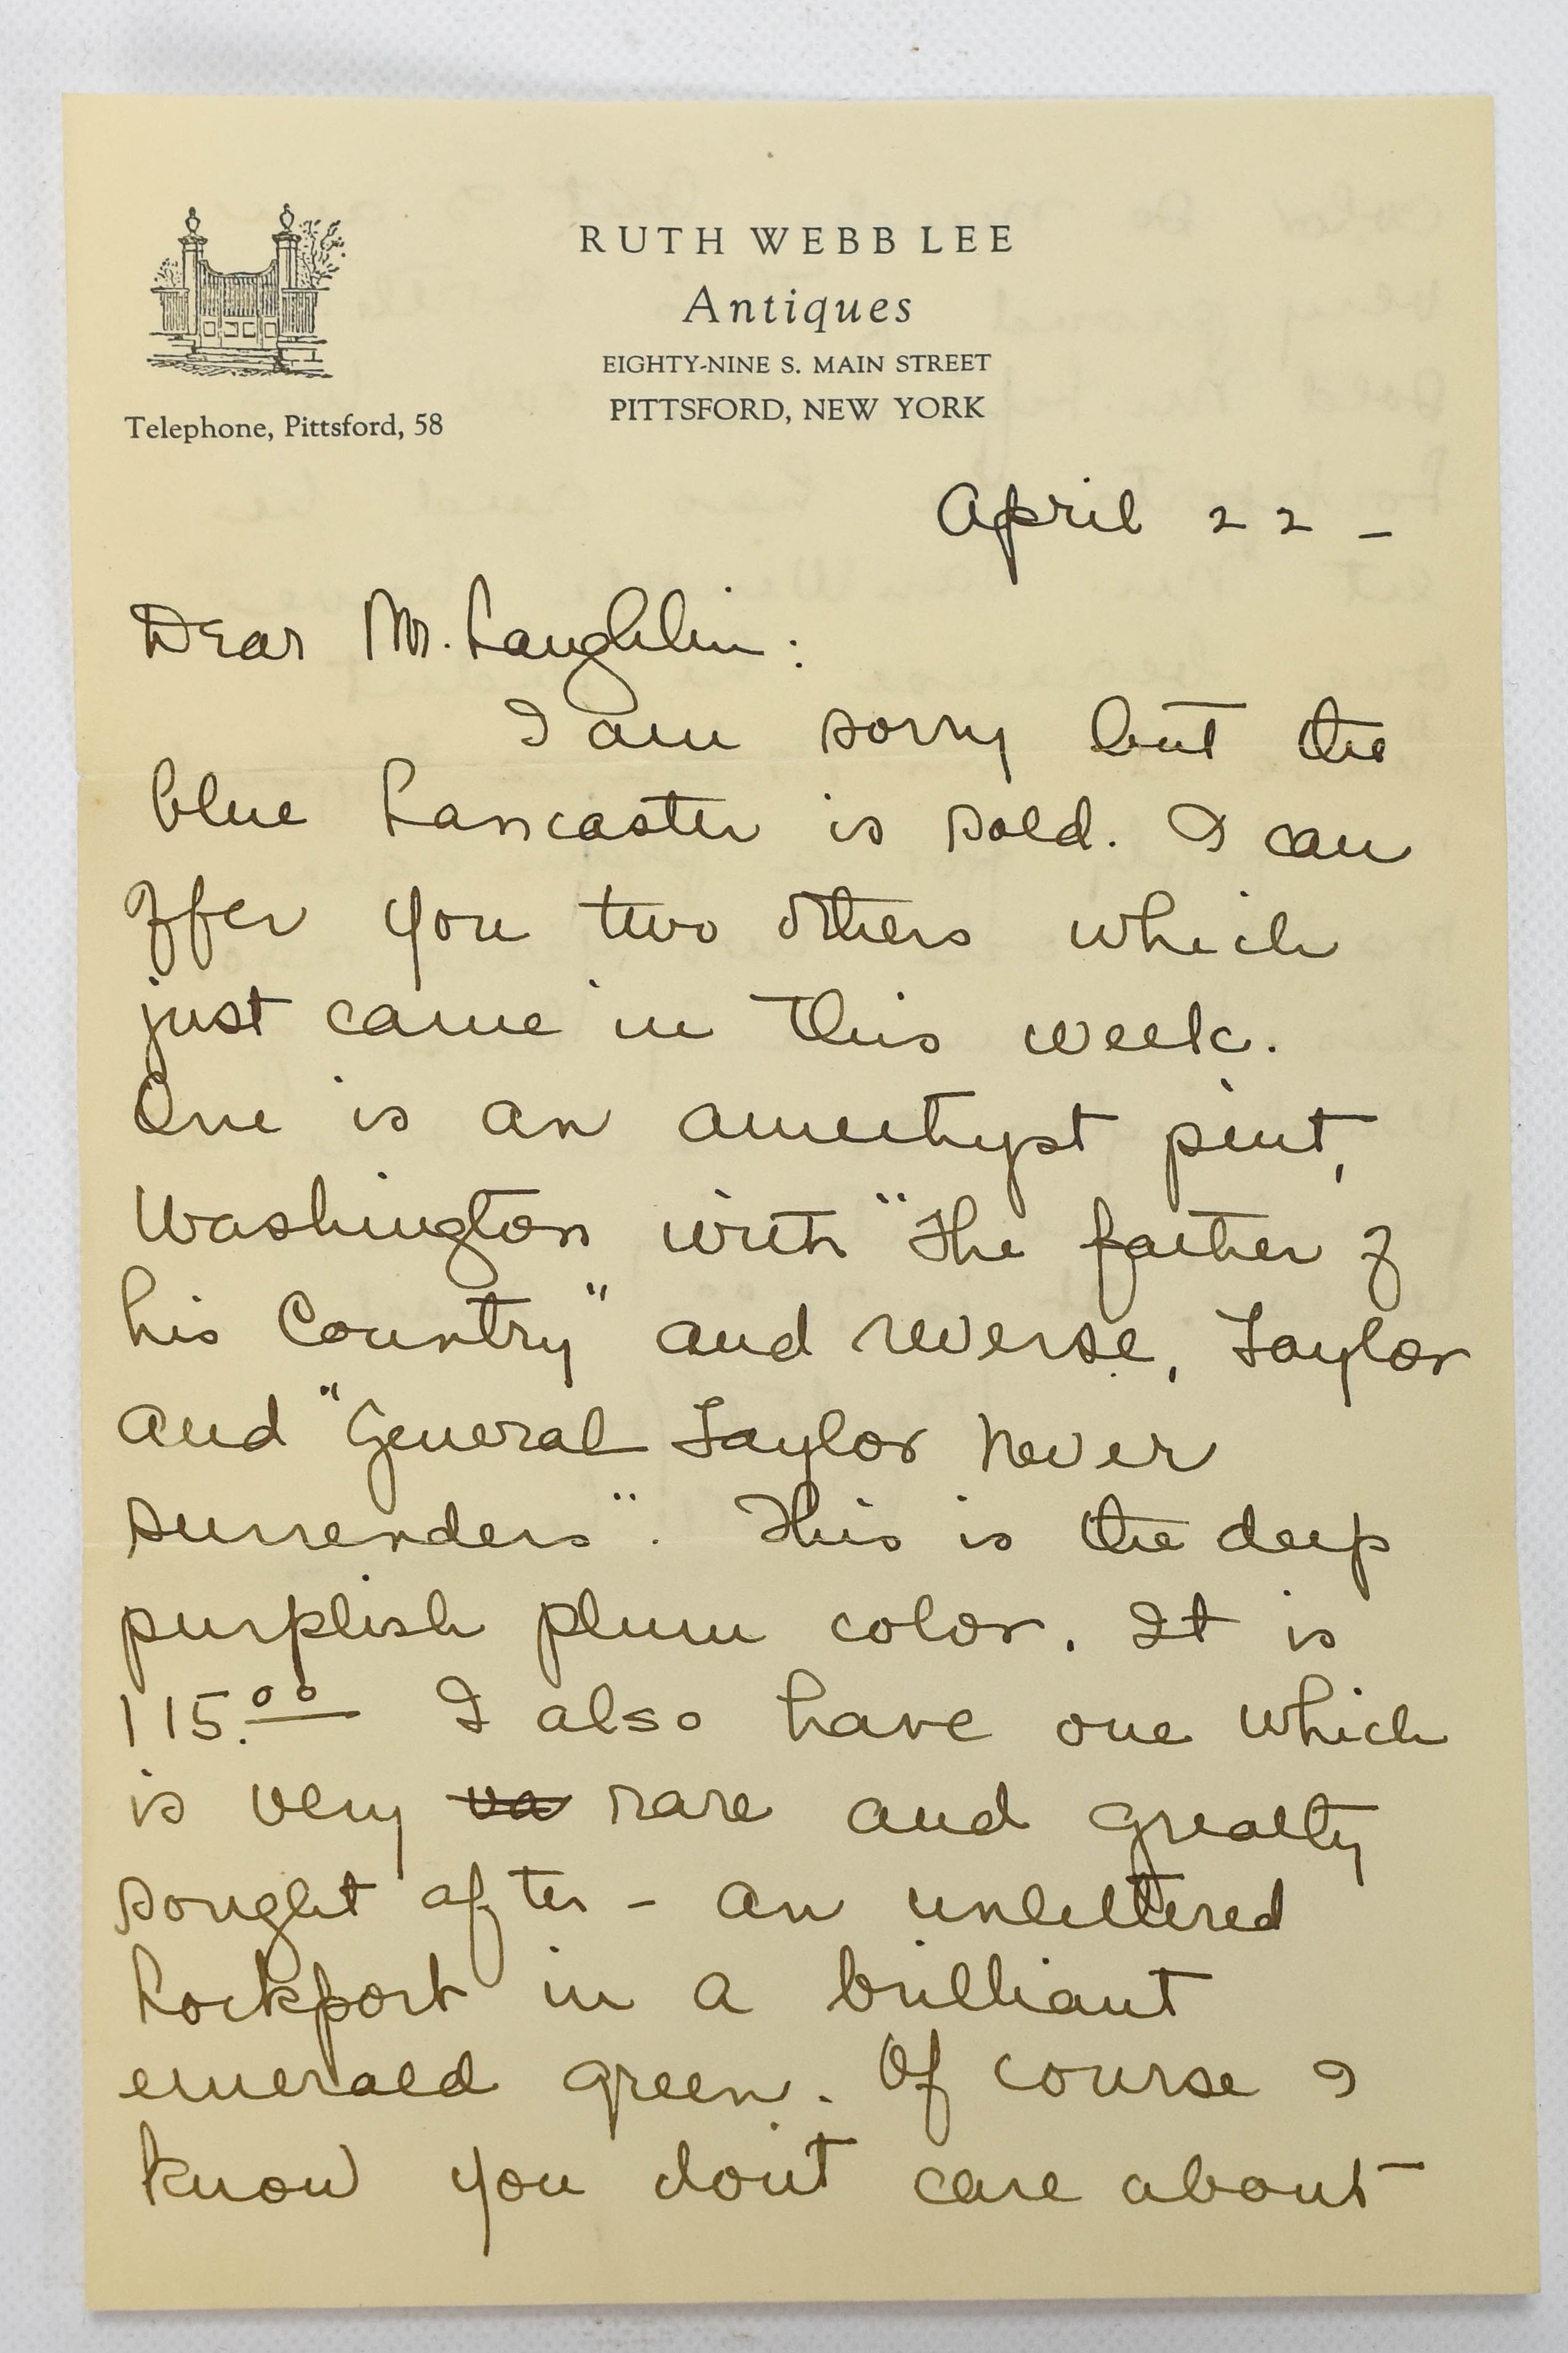 RUTH WEBB LEE
Antiques
EIGHTY-NINE S. MAIN STREET
PITTSFORD, NEW YORK
Telephone, Pittsford, 58
April 22 -
Dear Mr. Laughlin:
I am sorry but the
blue Lancaster is sold. I can
offer you two others which
just came in this week.
One is an amethyst pint,
Washington with "The father of
his Country" and reverse, Taylor
and "General Taylor never
surrenders". This is the deep
purplish plum color. It is
115.00 I also have one which
is very va rare and greatly
sought after - an unlettered
Lockport in a brilliant
emerald green. Of course I
know you don't care about